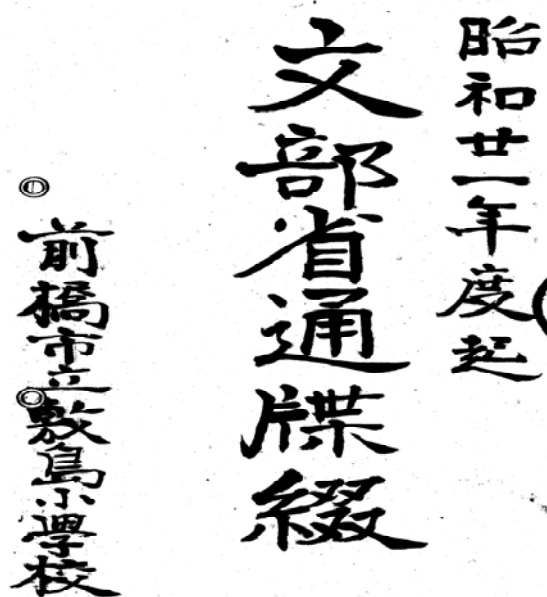 昭和廿一年度起
文部省通牒綴
前橋市立敷島小學校